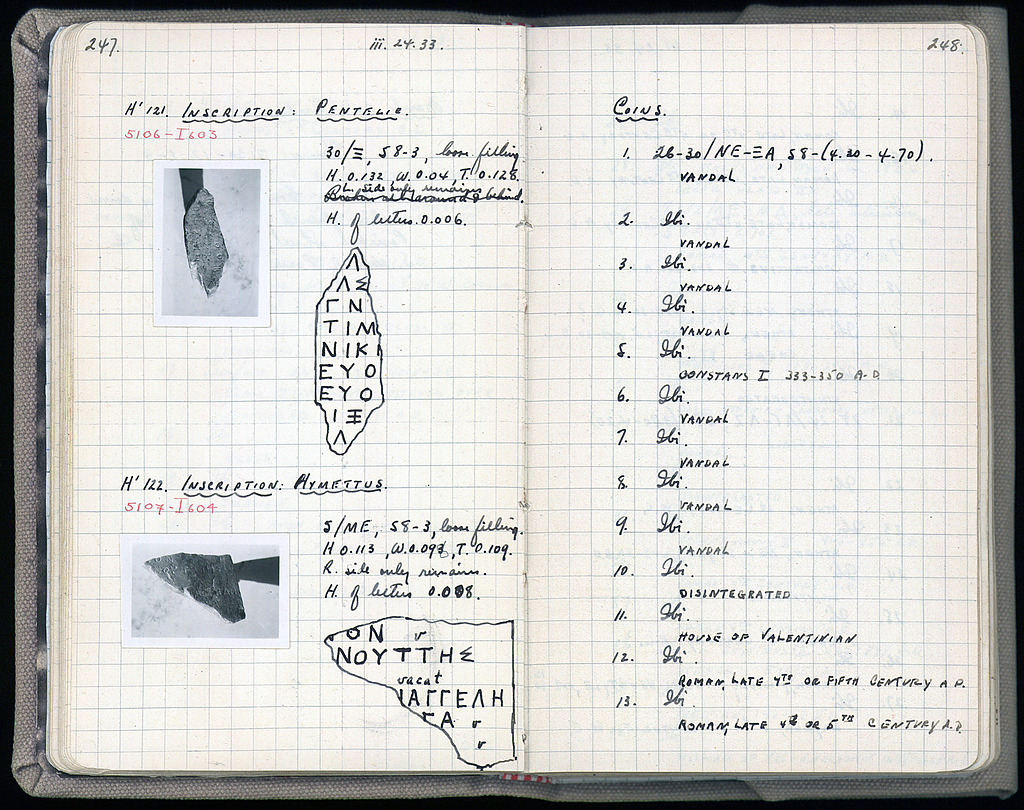 247.
iii. 24.33.
H' 121. INSCRIPTION: PENTELIC.
5106-I603
30/Ξ, S8-3, loose filling.
H. 0.132, W. 0.04, T. 0.128.
L. side only remains
H. of letters. 0.006.
Λ
ΛΣ
ΓΝ
ΤΙΜ
ΝΙΚΙ
ΕΥΟ
ΕΥΟ
ΙΞ
Λ
H' 122. INSCRIPTION: HYMETTUS.
5107-I604
5/ME, S8-3, loose filling.
H 0.113, W. 0.093, T. 0.109.
R. side only remains.
H. of letters 0.008.
ΟΝ v
ΝΟΥΤΤΗΣ
vacat
ΙΑΓΓΕΛΗ
ΓΑ v
v
248.
COINS.
1. 26-30/NE-ΞA, S8-(4.20-4.70).
VANDAL
2. Ibi.
VANDAL
3. Ibi.
VANDAL
4. Ibi.
VANDAL
5. Ibi.
CONSTANS I 333-350 A.D.
6. Ibi.
VANDAL
7. Ibi.
VANDAL
8. Ibi.
VANDAL
9. Ibi.
VANDAL
10. Ibi.
DISINTEGRATED
11. Ibi.
HOUSE OF VALENTINIAN
12. Ibi.
ROMAN, LATE 4TH OR FIFTH CENTURY A.D.
13. Ibi.
ROMAN, LATE 4th OR 5TH CENTURY A.D.